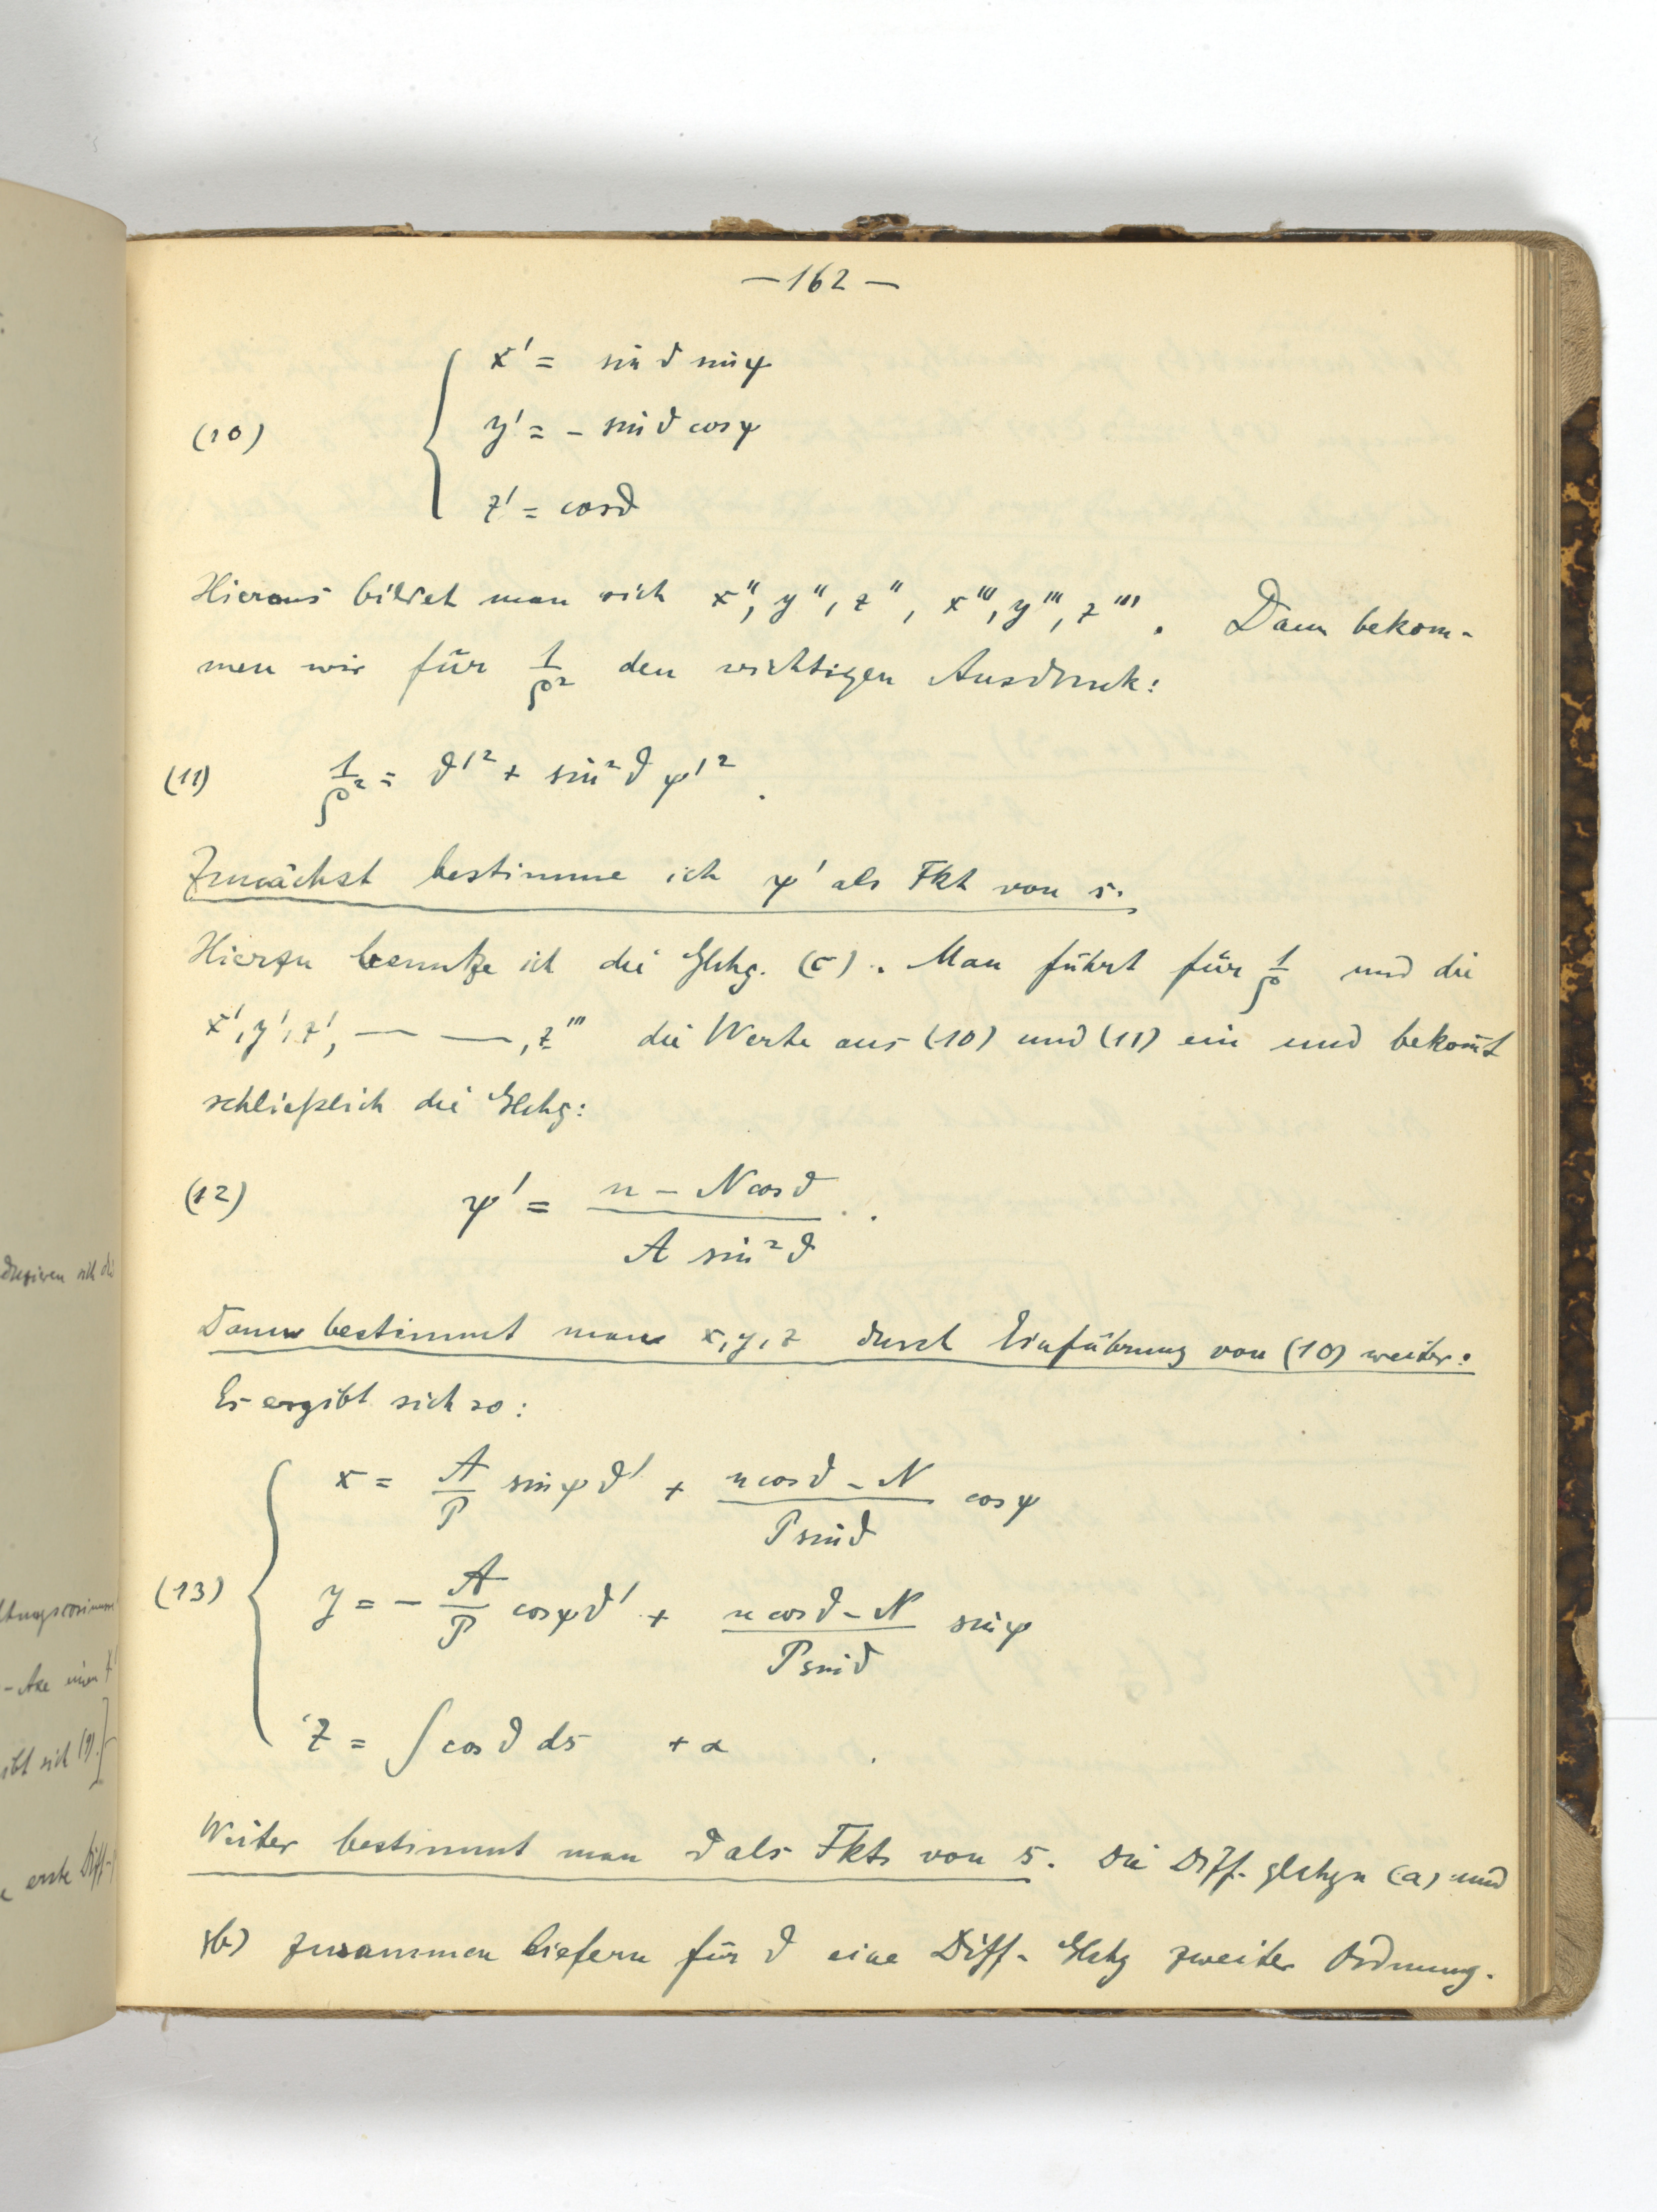 — 162 —
x' = sin ϑ sin ψ
(10) y' = - sin ϑ cos ψ
z' = cos ϑ
Hieraus bildet man sich x'', y'', z'', x''', y''', z'''. Dann bekom-
men wir für 1/ρ² den richtigen Ausdruck:
(11) 1/ρ² = ϑ'² + sin² ϑ ψ'² .
Zunächst bestimme ich ψ' als Fkt von s.
Hierzu benutze ich die Glchg. (c). Man führt für 1/ρ und die
x', y', z', — —, z''' die Werte aus (10) und (11) ein und bekom̄t
schließlich die Glchg:
(12) ψ' = (n - N cos ϑ) / (A sin² ϑ) .
Dann bestimmt man x, y, z durch Einführung von (10) weiter:
Es ergibt sich so:
x = A/P sin ψ ϑ' + (n cos ϑ - N) / (P sin ϑ) cos ψ
(13) y = - A/P cos ψ ϑ' + (n cos ϑ - N) / (P sin ϑ) sin ψ
z = ∫ cos ϑ ds + α .
Weiter bestimmt man ϑ als Fkt von s. Die Diff-glchgn (a) und
(b) zusammen liefern für ϑ eine Diff-Glchg zweiter Ordnung.
sich die
ibt sich (9).]
erste Diff-